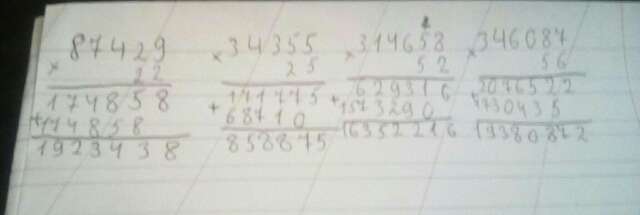 87429
×
22
174858
+174858
1923438
34355
×
25
171775
+
68710
858875
314658
×
52
629316
+
1573290
16352216
346087
×
56
2076522
+1730435
19380872